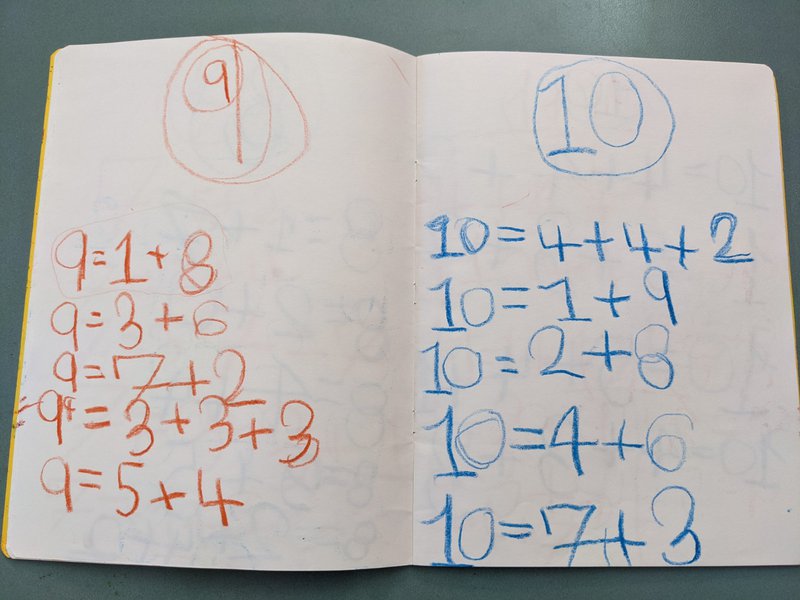 9
9=1+8
9=3+6
9=7+2
9=3+3+3
9=5+4
10
10=4+4+2
10=1+9
10=2+8
10=4+6
10=7+3